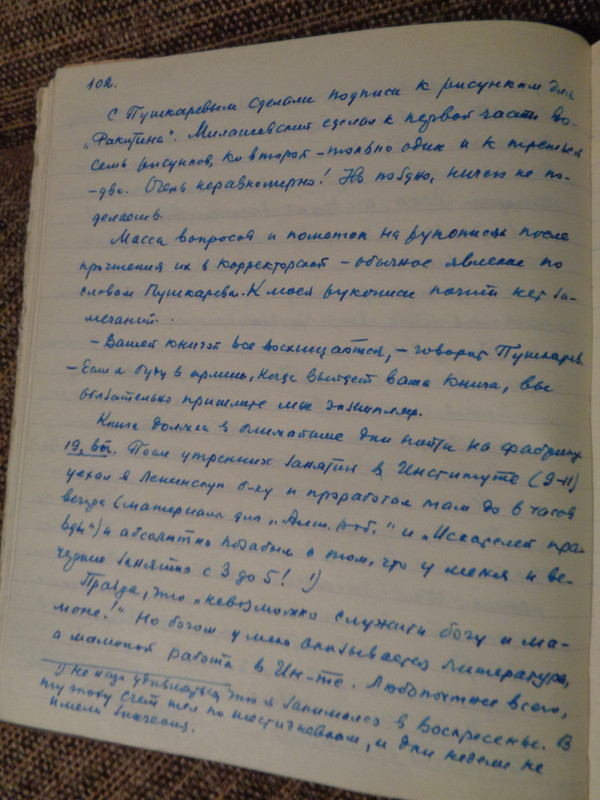 102.
С Пушкаревым сделали подписи к рисункам для
„Ракитина". Милашевский сделал к первой части во-
семь рисунков, ко второй – только один и к третьей
– два. Очень неравномерно! Но поздно, ничего не по-
делаешь.
Масса вопросов и пометок на рукописях после
прочтения их в корректорской – обычное явление по
словам Пушкарева. К моей рукописи почти нет за-
мечаний.
– Вашей книгой все восхищаются, – говорит Пушкарев.
– Если я буду в армии, когда выйдет ваша книга, вы
обязательно пришлите мне экземпляр.
Книга должна в ближайшие дни пойти на фабрику
19, вы. После утренних занятий в Институте (9–11)
уехал я Ленинскую б-ку и проработал там до 6 часов
вечера (материалы для „Алт. роб." и „Искателей пра-
вды") и абсолютно позабыл о том, что у меня и ве-
черние занятия с 3 до 5! ¹)
Правда, что „невозможно служить богу и ма-
моне!" Но богом у меня оказывается литература,
а мамоной работа в Ин-те. Любопытнее всего,
¹) Не надо удивляться, что я занимался в воскресенье. В
ту эпоху счет шел по шестидневкам, и дни недели не
имели значения.